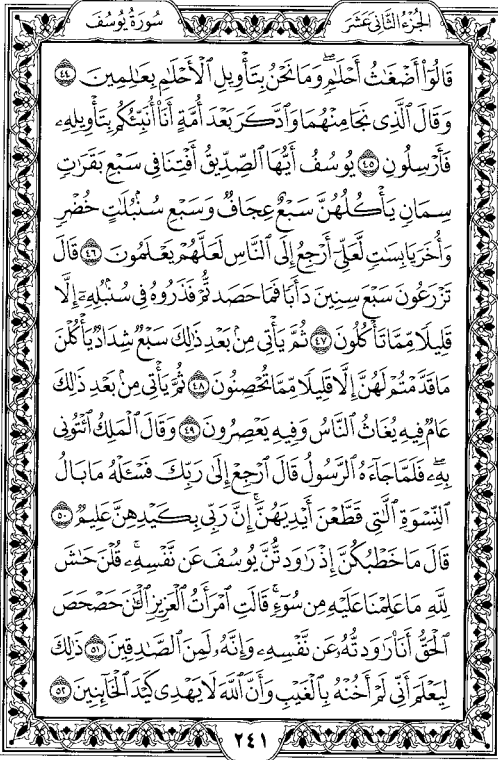 سُورَةُ يُوسُفَ
الجُزْءُ الثَّانِي عَشَرَ
قَالُوٓاْ أَضۡغَٰثُ أَحۡلَٰمٖۖ وَمَا نَحۡنُ بِتَأۡوِيلِ ٱلۡأَحۡلَٰمِ بِعَٰلِمِينَ ٤٤
وَقَالَ ٱلَّذِي نَجَا مِنۡهُمَا وَٱدَّكَرَ بَعۡدَ أُمَّةٍ أَنَا۠ أُنَبِّئُكُم بِتَأۡوِيلِهِۦ
فَأَرۡسِلُونِ ٤٥ يُوسُفُ أَيُّهَا ٱلصِّدِّيقُ أَفۡتِنَا فِي سَبۡعِ بَقَرَٰتٖ
سِمَانٖ يَأۡكُلُهُنَّ سَبۡعٌ عِجَافٞ وَسَبۡعِ سُنۢبُلَٰتٍ خُضۡرٖ
وَأُخَرَ يَابِسَٰتٖ لَّعَلِّيٓ أَرۡجِعُ إِلَى ٱلنَّاسِ لَعَلَّهُمۡ يَعۡلَمُونَ ٤٦ قَالَ
تَزۡرَعُونَ سَبۡعَ سِنِينَ دَأَبٗا فَمَا حَصَدتُّمۡ فَذَرُوهُ فِي سُنۢبُلِهِۦٓ إِلَّا
قَلِيلٗا مِّمَّا تَأۡكُلُونَ ٤٧ ثُمَّ يَأۡتِي مِنۢ بَعۡدِ ذَٰلِكَ سَبۡعٞ شِدَادٞ يَأۡكُلۡنَ
مَا قَدَّمۡتُمۡ لَهُنَّ إِلَّا قَلِيلٗا مِّمَّا تُحۡصِنُونَ ٤٨ ثُمَّ يَأۡتِي مِنۢ بَعۡدِ ذَٰلِكَ
عَامٞ فِيهِ يُغَاثُ ٱلنَّاسُ وَفِيهِ يَعۡصِرُونَ ٤٩ وَقَالَ ٱلۡمَلِكُ ٱئۡتُونِي
بِهِۦۖ فَلَمَّا جَآءَهُ ٱلرَّسُولُ قَالَ ٱرۡجِعۡ إِلَىٰ رَبِّكَ فَسۡـَٔلۡهُ مَا بَالُ
ٱلنِّسۡوَةِ ٱلَّٰتِي قَطَّعۡنَ أَيۡدِيَهُنَّۚ إِنَّ رَبِّي بِكَيۡدِهِنَّ عَلِيمٞ ٥٠
قَالَ مَا خَطۡبُكُنَّ إِذۡ رَٰوَدتُّنَّ يُوسُفَ عَن نَّفۡسِهِۦۚ قُلۡنَ حَٰشَ
لِلَّهِ مَا عَلِمۡنَا عَلَيۡهِ مِن سُوٓءٖۚ قَالَتِ ٱمۡرَأَتُ ٱلۡعَزِيزِ ٱلۡـَٰٔنَ حَصۡحَصَ
ٱلۡحَقُّ أَنَا۠ رَٰوَدتُّهُۥ عَن نَّفۡسِهِۦ وَإِنَّهُۥ لَمِنَ ٱلصَّٰدِقِينَ ٥١ ذَٰلِكَ
لِيَعۡلَمَ أَنِّي لَمۡ أَخُنۡهُ بِٱلۡغَيۡبِ وَأَنَّ ٱللَّهَ لَا يَهۡدِي كَيۡدَ ٱلۡخَآئِنِينَ ٥٢
٢٤١